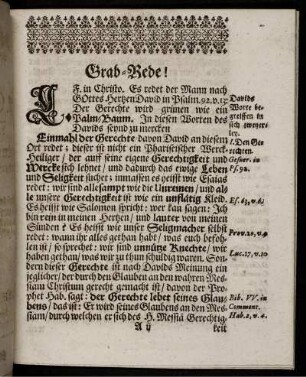 Grab-Rede!
F. in Christo. Es redet der Mann nach
GOttes Hertzen David in Psalm. 92. v. 13.
Der Gerechte wird grünen wie ein
Palm-Baum. In diesen Worten des
Davids seynd zu mercken
Einmahl der Gerechte davon David an diesem
Ort redet; dieser ist nicht ein Phariseischer Werck-
Heiliger / der auf seine eigene Gerechtigkeit und
Wercke sich lehnet / und dadurch das ewige Leben
und Seligkeit suchet: inmassen es heist wie Esaias
redet: wir sind alle sampt wie die Unreinen / und al-
le unsere Gerechtigkeit ist wie ein unflätig Kleid.
Es heist wie Salomon spricht: wer kan sagen: Ich
bin rein in meinen Hertzen / und lauter von meinen
Sünden? Es heist wie unser Seligmacher selbst
redet: wann ihr alles gethan habt / was euch befoh-
len ist / so sprechet: wir sind unnütze Knechte / wir
haben gethan / was wir zu thun schuldig waren. Son-
dern dieser Gerechte ist nach Davids Meinung ein
jeglicher / der durch den Glauben den wahren Mes-
siam Christum gerecht gemacht ist / davon der Pro-
phet Hab. sagt: der Gerechte lebet seines Glau-
bens / das ist: Er wird seines Glaubens an den Mes-
siam / durch welchen er sich des H. Messiä Gerechtig-
A ij
keit
Davids
Worte be-
greiffen in
sich zweyer-
ley.
1. Den Ge-
rechten.
Gesner. in
Ps. 92.
Es. 64, v. 6.
Prov. 20, v. 9
Luc. 17, v. 10
Bib. VV. in
Comment.
Hab. 2, v. 4.